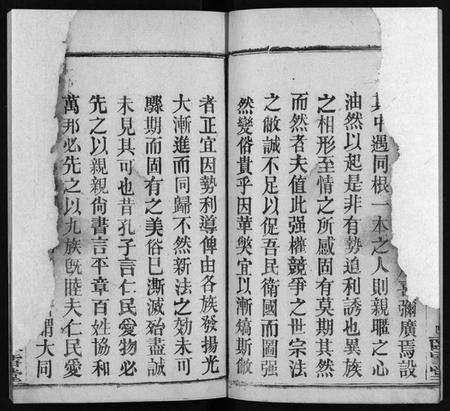 彌廣焉設
其中遇同根一本之人則親暱之心
油然以起是非有勢迫利誘也異族
之相形至情之所感固有莫期其然
而然者夫值此强權競爭之世宗法
之敝誠不足以促吾民衛國而圖强
然變俗貴乎因革獘宜以漸熇斯敝
者正宜因勢利導俾由各族發揚光
大漸進而同歸不然新法之効未可
驟期而固有之美俗已澌滅殆盡誠
未見其可也昔孔子言仁民愛物必
先之以親親尙書言平章百姓協和
萬邦必先之以九族旣睦夫仁民愛
謂大同